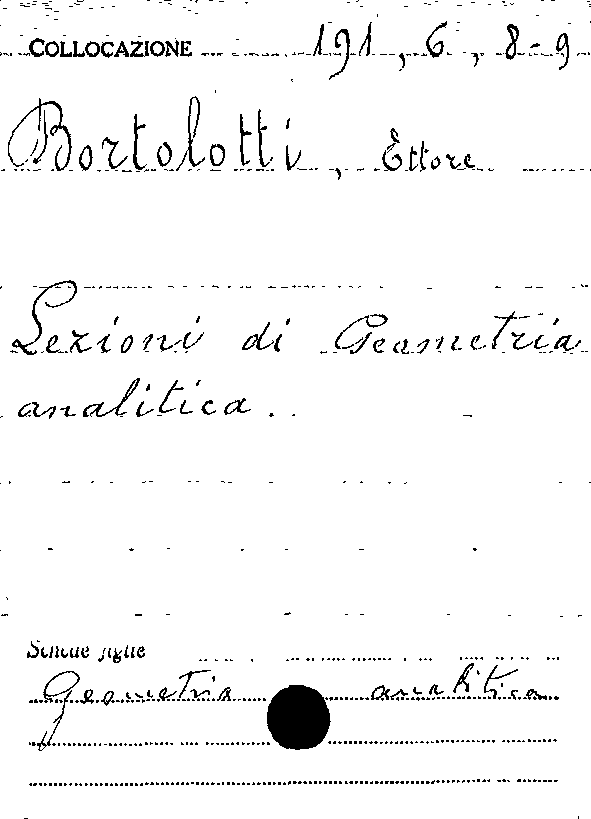 COLLOCAZIONE 191, 6, 8-9
Bortolotti, Ettore
Lezioni di Geometria
analitica.
Schede figlie
Geometria analitica